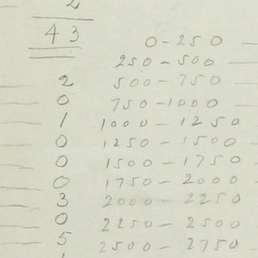 2
43
0-250
250-500
2 500-750
0 750-1000
1 1000-1250
0 1250-1500
0 1500-1750
0 1750-2000
3 2000-2250
0 2250-2500
5 2500-2750